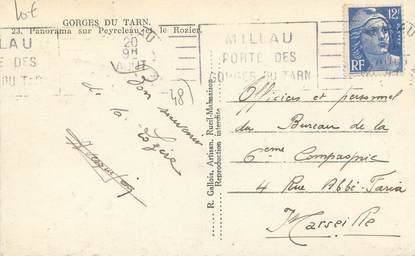 Lot
GORGES DU TARN.
23. Panorama sur Peyreleau et le Rozier.
LAU
DES
DU TARN
20
9H
AOUT
MILLAU
PORTE DES
GORGES DU TARN
12F
RF
(48)
Bon souvenir
de la
Lozère
R. Gallois, Artisan, Rueil-Malmaison
Reproduction interdite
Officiers et personnel
du Bureau de la
6eme Compagnie
4 Rue Abbé-Faria
Marseille